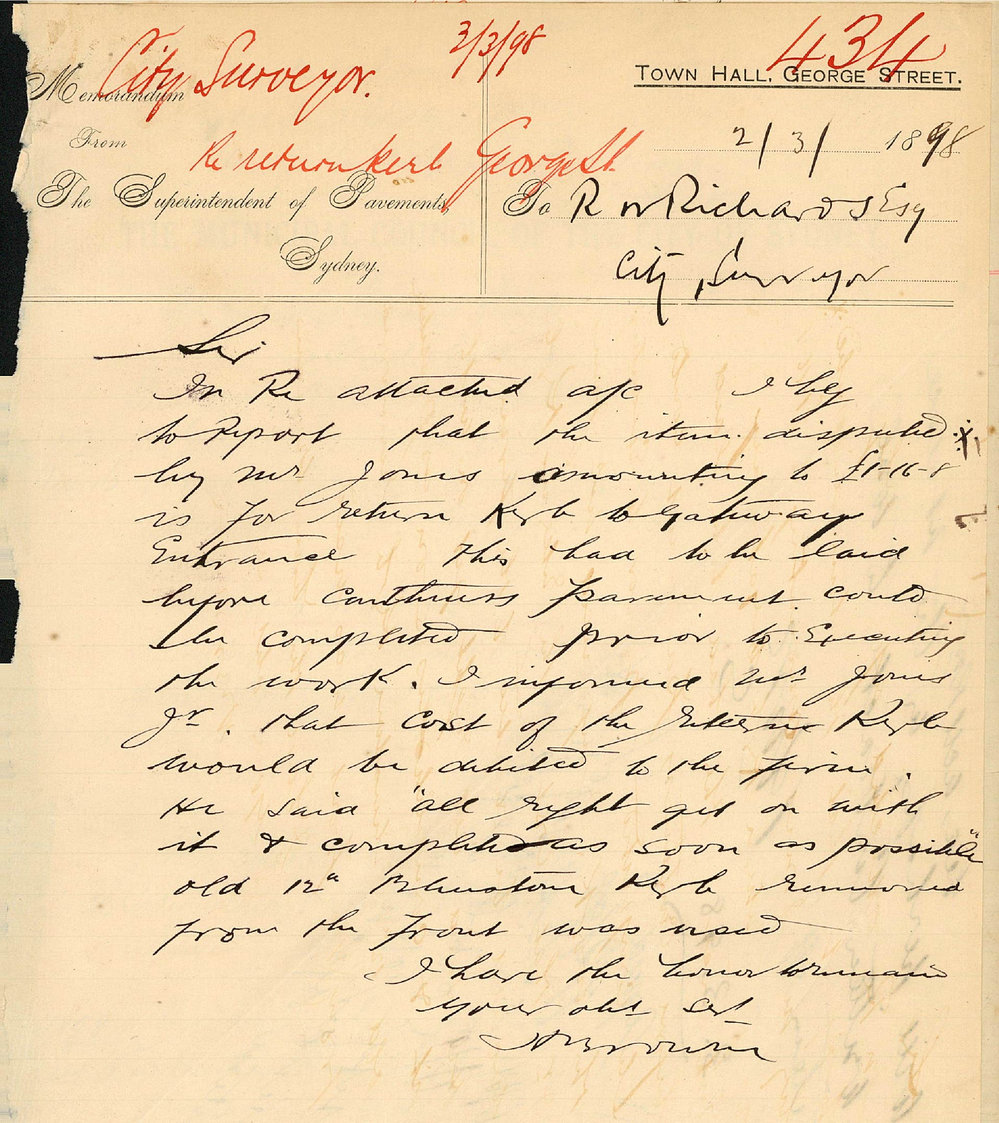 City Surveyor. 3/3/98 434
Memorandum TOWN HALL, GEORGE STREET.
From 2/3/ 1898
Re return kerb George St.
The Superintendent of Pavements, To R W Richards Esq
Sydney. City Surveyor
Sir
In Re attached a/c I beg
to Report that the item disputed
by Mr Jones amounting to £1-16-8
is for return Kerb to Gateway
Entrance This had to be laid
before Continuous pavement could
be completed prior to Executing
the work. I informed Mr Jones
Jr. that Cost of the return Kerb
would be debited to the firm.
He said "all right get on with
it & completed as soon as possible"
old 12" Bluestone Kerb removed
from the front was used
I have the honor to remain
your obt Sert
A Browne